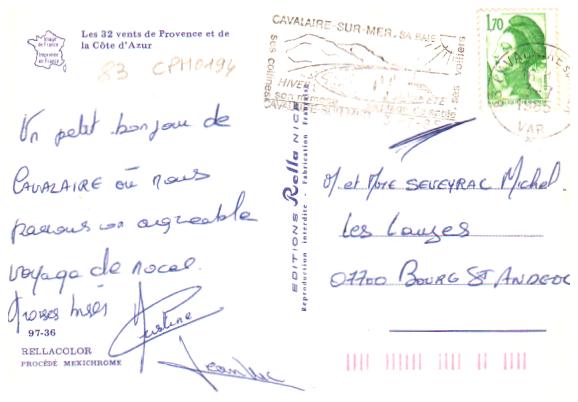 Les 32 vents de Provence et de
la Côte d'Azur
Image
de France
Imprimée
en France
83 CPM0194
Un petit bonjour de
CAVALAIRE où nous
passons un agréable
voyage de noces.
Grosses bises
Justine
Jean Luc
97-36
RELLACOLOR
PROCÉDÉ MEXICHROME
EDITIONS Rella NICE
Reproduction interdite - Fabrication Française
CAVALAIRE-SUR-MER. SA BAIE
ses collines
ses voiliers
HIVER
ETE
1,70
CAVALAIRE S
1985
VAR
M. et Mme SEVEYRAC Michel
Les Lauzes
07700 BOURG ST ANDEOL